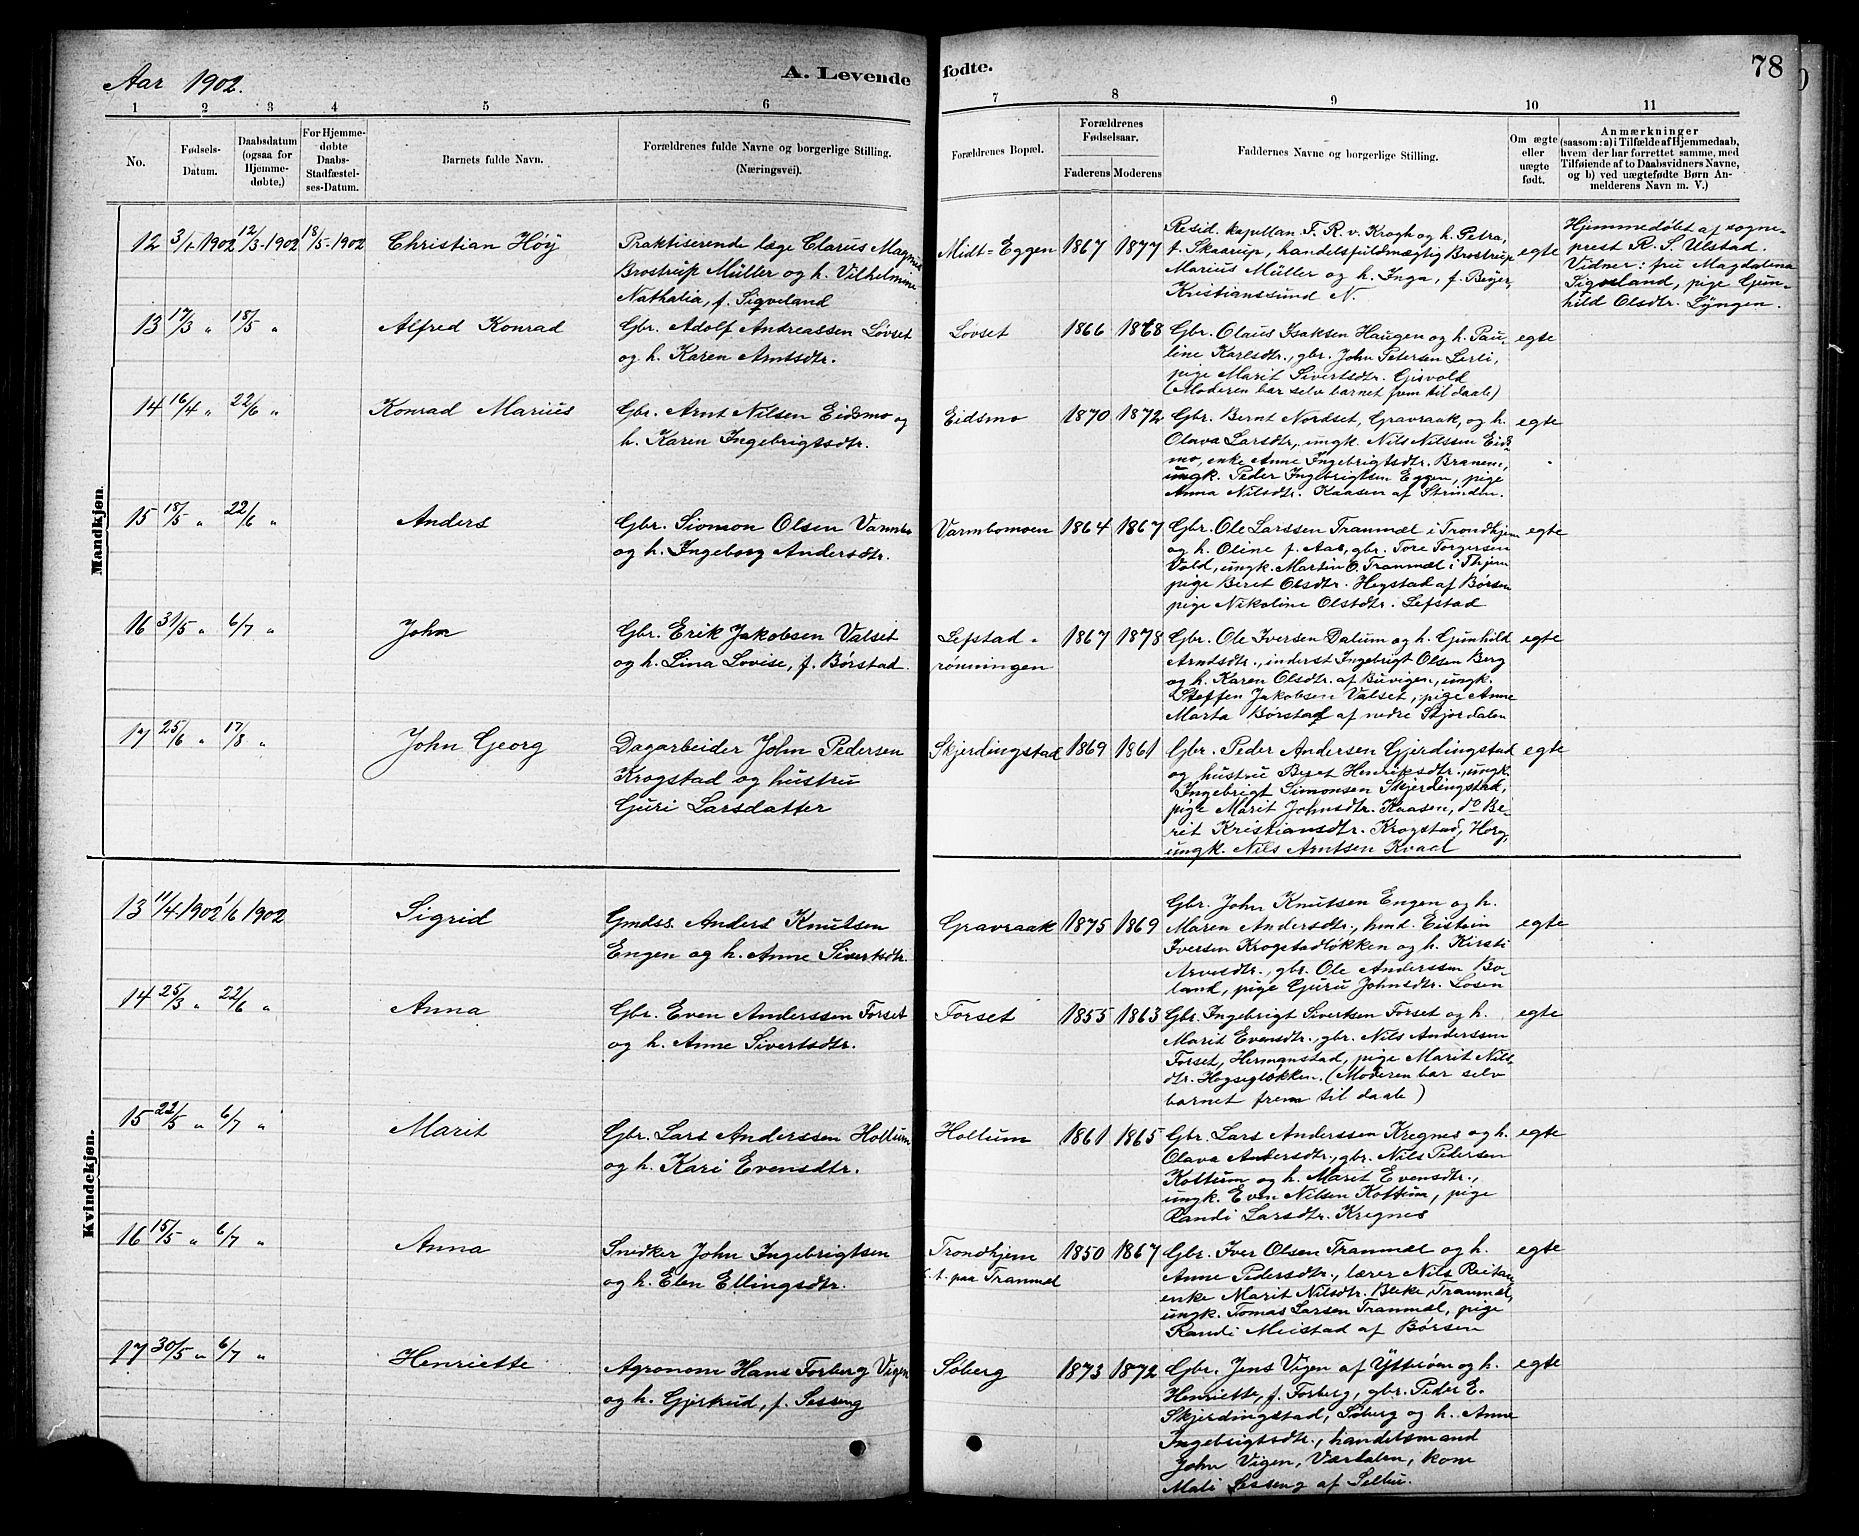 Aar 1902.
A. Levende
fødte.
78
1 2 3 4 5 6 7 8 9 10 11
No.
Fødsels-
Datum.
Daabsdatum
(ogsaa for
Hjemme-
døbte.)
For Hjemme-
døbte
Daabs-
Stadfæstel-
ses-Datum.
Barnets fulde Navn.
Forældrenes fulde Navne og borgerlige Stilling.
(Næringsvei).
Forældrenes Bopæl.
Forældrenes
Fødselsaar.
Faderens Moderens
Faddernes Navne og borgerlige Stilling.
Om ægte
eller
uægte
født.
Anmærkninger
(saasom: a) i Tilfælde af Hjemmedaab,
hvem der har forrettet samme, med
Tilføiende af to Daabsvidners Navne,
og b) ved uægtefødte Børn An-
melderens Navn m. V.)
Mandkjøn.
12 3/1 1902 12/3 1902 18/5 1902 Christian Höy
Praktiserende læge Clarus Magnus
Brostrup Müller og h. Vilhelmine
Nathalia, f. Sigveland
Midt-Eggen 1867 1877
Resid. kapellan F. R. v. Krogh og h. Petra,
f. Skaarup, handelsfuldmægtig Brostrup
Marius Müller og h. Inga, f. Bøyer,
Kristianssund N.
egte
Hjemmedøbt af sogne-
prest R. S. Ulstad.
Vidner: fru Magdalena
Sigveland, pige Gun-
hild Olsdtr. Lyngen.
13 17/3 " 18/5 " Alfred Konrad
Gbr. Adolf Andreassen Løvset
og h. Karen Arntsdtr.
Løvset 1866 1868
Gbr. Olaus Isaksen Haugen og h. Pau-
line Karlsdtr., gbr. John Petersen Lerli,
pige Marit Sivertsdtr. Gisvold
(Moderen bar selv barnet frem til daab)
egte
14 16/4 " 22/6 " Konrad Marius
Gbr. Arnt Nilsen Eidsmo og
h. Karen Ingebrigtsdtr.
Eidsmo 1870 1872
Gbr. Bernt Nordset, Gravraak, og h.
Olava Larsdtr., ungk. Nils Nilssen Eids-
mo, enke Anne Ingebrigtsdtr. Branem,
ungk. Peder Ingebrigtsen Eggen, pige
Anna Nilsdtr. Kaasen af Strinden.
egte
15 18/5 " 22/6 " Anders
Gbr. Simon Olsen Varmbo
og h. Ingeborg Andersdtr.
Varmbomoen 1864 1867
Gbr. Ole Larssen Tranmæl i Trondhjem
og h. Oline f. Aas, gbr. Tore Torgersen
Vold, ungk. Martin O. Tranmæl i Thjem
pige Beret Olsdtr. Hegstad af Børsen
pige Nikoline Olsdtr. Lefstad
egte
16 31/5 " 6/7 " John
Gbr. Erik Jakobsen Valset
og h. Lina Lovise, f. Børstad.
Lefstad-
rønningen
1867 1878
Gbr. Ole Iversen Dalum og h. Gunhild
Arndsdtr., inderst Ingebrigt Olsen Berg
og h. Karen Olsdtr. af Buvigen, ungk.
Steffen Jakobsen Valset, pige Anne
Marta Børstad af nedre Stjørdalen
egte
17 25/6 " 17/8 " John Georg
Dagarbeider John Pedersen
Krogstad og hustru
Guri Larsdatter
Skjerdingstad 1869 1861
Gbr. Peder Andersen Gjerdingstad
og hustru Beret Henriksdtr., ungk.
Ingebrigt Simonsen Skjerdingstad,
pige Marit Johnsdtr. Kaasen, do Be-
rit Kristiansdtr. Krogstad, Horg,
ungk. Nils Arntsen Kvaal
egte
Kvindekjøn.
13 11/4 1902 1/6 1902 Sigrid
Gmdss. Anders Knutsen
Engen og h. Anne Sivertsdtr.
Gravraak 1875 1869
Gbr. John Knutssen Engen og h.
Maren Andersdtr., hmd. Eistein
Iversen Krogstadløkken og h. Kirsti
Arvesdtr., gbr. Ole Anderssen Bo-
land, pige Guru Johnsdtr. Losen
egte
14 25/3 " 22/6 " Anna
Gbr. Even Anderssen Forset
og h. Anne Sivertsdtr.
Forset 1855 1863
Gbr. Ingebrigt Sivertsen Forset og h.
Marit Evensdtr., gbr. Nils Anderssen
Forset, Hermanstad, pige Marit Nils-
dtr. Hogsegløkken. (Moderen bar selv
barnet frem til daab)
egte
15 22/5 " 6/7 " Marit
Gbr. Lars Anderssen Hollum
og h. Kari Evensdtr.
Hollum 1861 1865
Gbr. Lars Anderssen Kregnes og h.
Olava Andersdtr., gbr. Nils Pedersen
Kottum og h. Marit Evensdtr.,
ungk. Even Nilsen Kottum, pige
Randi Larsdtr. Kregnes
egte
16 15/5 " 6/7 " Anna
Snedker John Ingebrigtsen
og h. Elen Ellingsdtr.
Trondhjem
f. t. paa Tranmæl
1850 1867
Gbr. Iver Olsen Tranmæl og h.
Anne Pedersdtr., lærer Nils Reitan,
enke Marit Nilsdtr. Bekke, Tranmæl,
ungk. Tomas Larsen Tranmæl, pige
Randi Meistad af Børsen
egte
17 30/5 " 6/7 " Henriette
Agronom Hans Forberg Vigen
og h. Gjertrud, f. Sesseng
Søberg 1873 1872
Gbr. Jens Vigen af Ytterøen og h.
Henriette, f. Forberg, gbr. Peder E.
Skjerdingstad, Søberg og h. Anne
Ingebrigtsdtr., handelsmand
John Vigen, Værdalen, kone
Mali Sesseng af Selbu.
egte